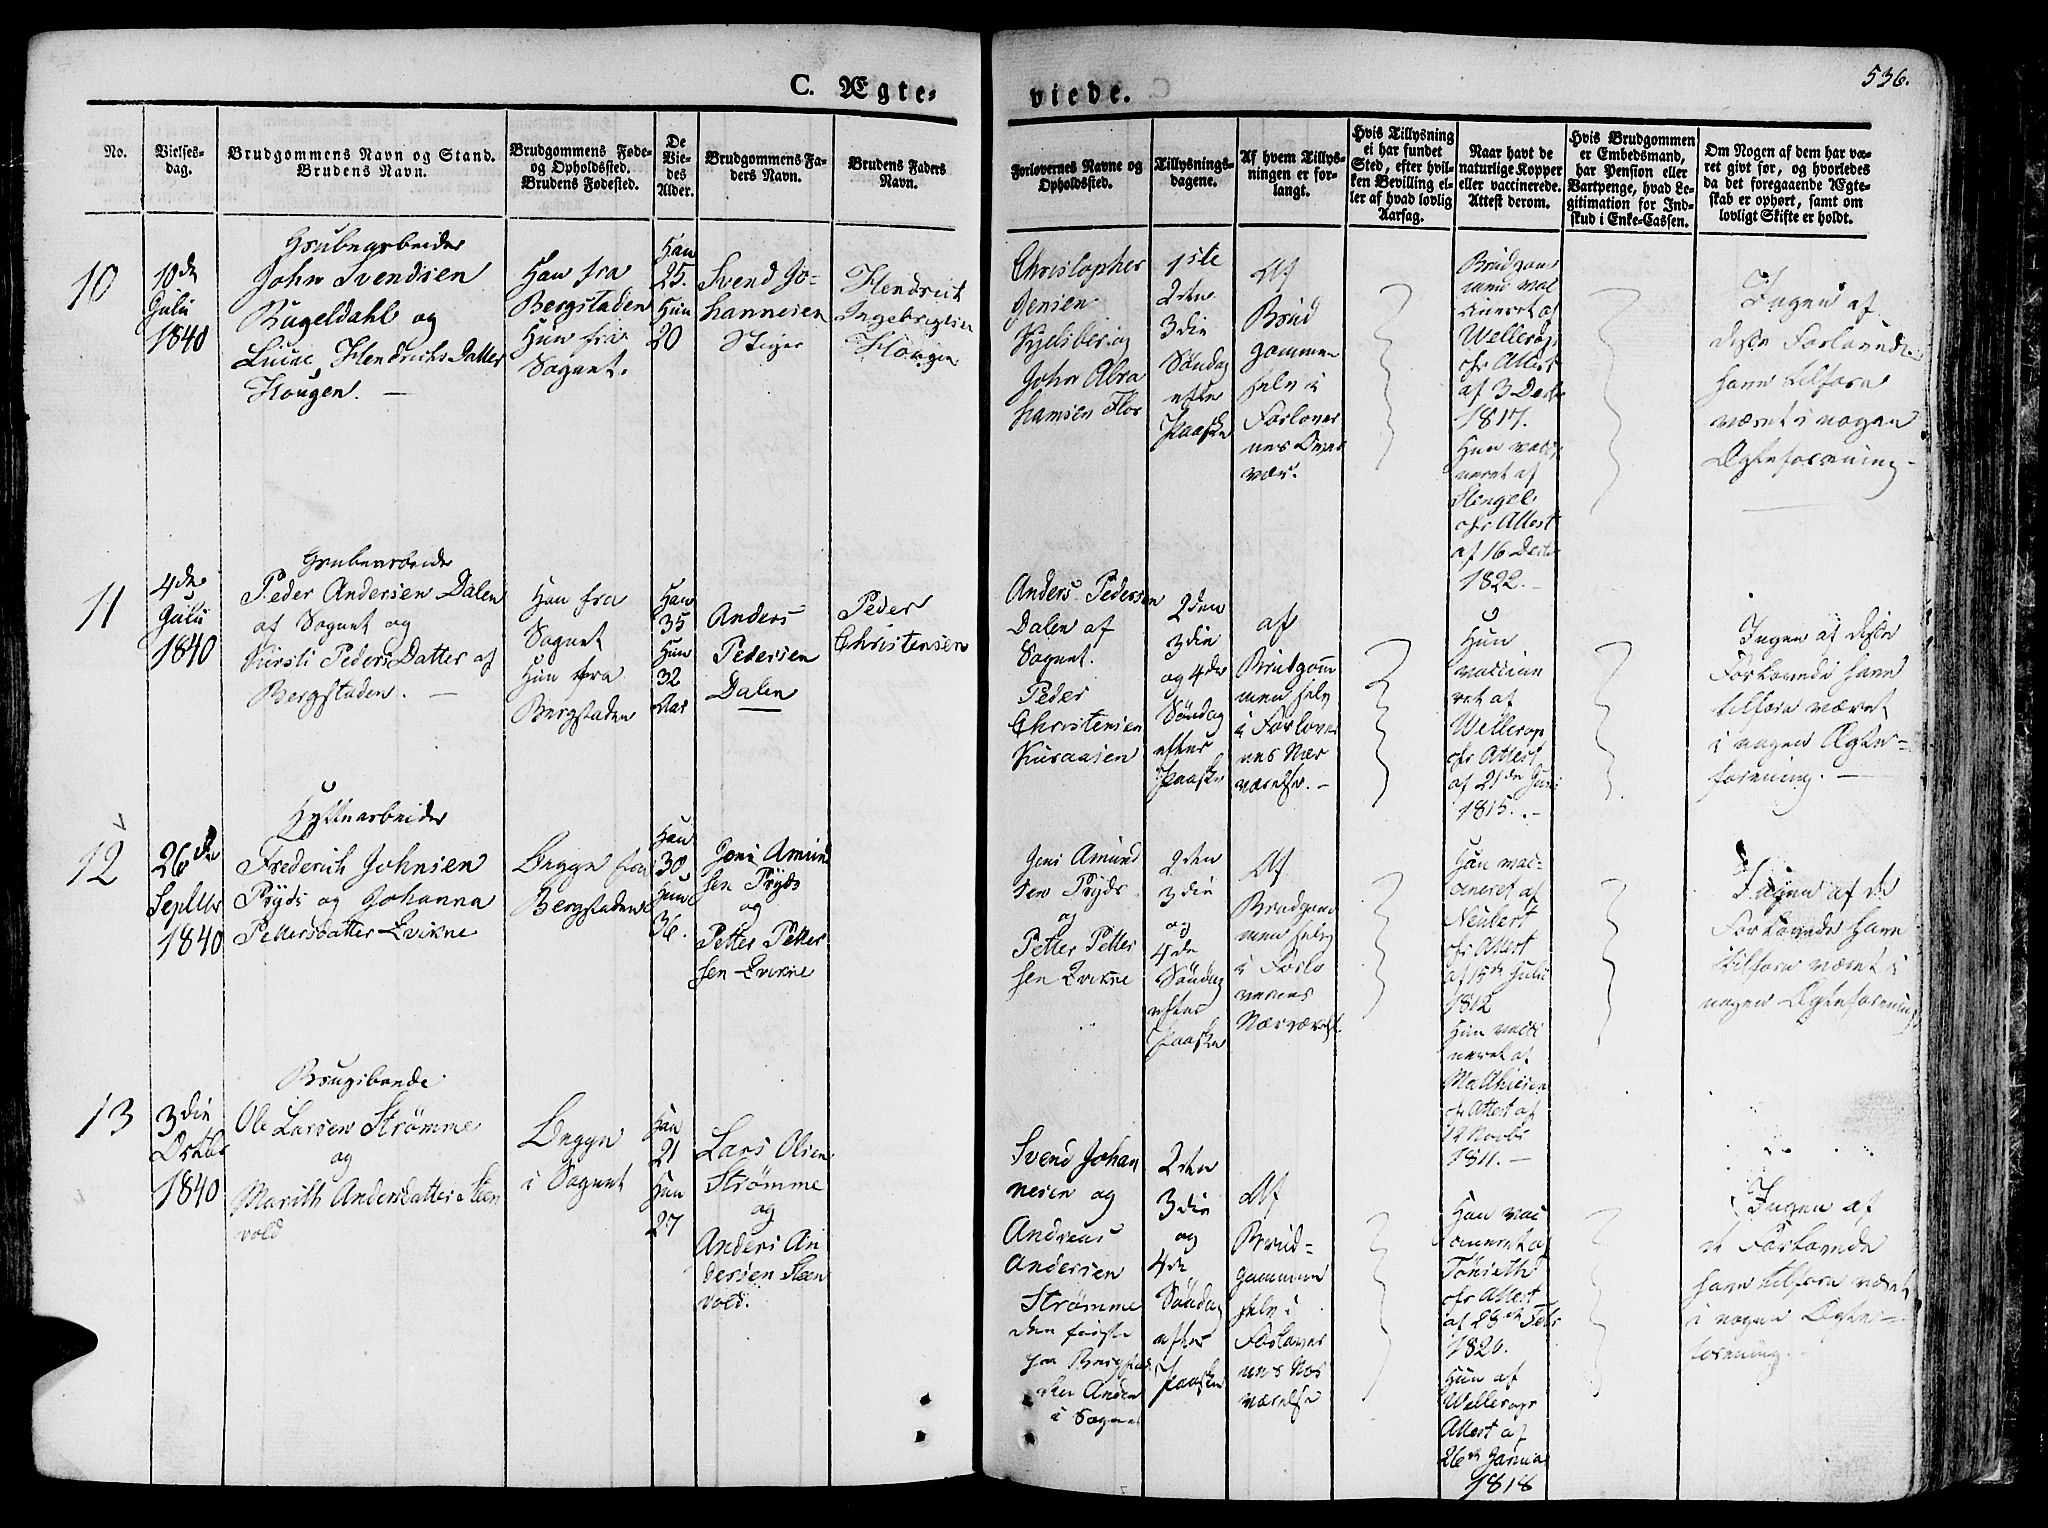 C. Ægte-
viede.
536.
No.
Vielses-
dag.
Brudgommens Navn og Stand.
Brudens Navn.
Brudgommens Føde-
og Opholdssted.
Brudens Fødested.
De
Vie-
des
Alder.
Brudgommens Fa-
ders Navn.
Brudens Faders
Navn.
Forlovernes Navne og
Opholdssted.
Tillysnings-
dagene.
Af hvem Tillys-
ningen er for-
langt.
Hvis Tillysning
ei har fundet
Sted, efter hvil-
ken Bevilling el-
ler af hvad lovlig
Aarsag.
Naar havt de
naturlige Kopper
eller vaccinerede.
Attest derom.
Hvis Brudgommen
er Embedsmand,
har Pension eller
Vartpenge, hvad Le-
gitimation for Ind-
skud i Enke-Cassen.
Om Nogen af dem har væ-
ret givt før, og hvorledes
da det foregaaende Ægte-
skab er ophørt, samt om
lovligt Skifte er holdt.
10
10de
Juli
1840
Grubearbeider
John Svendsen
Rugeldahl og
Hendrichs Datter
Hougen. —
Han fra
Bergstaden
Hun fra
Sognet.
Han
25.
Hun
20
Svend Jo-
hannesen
Stiger
Hendrich
Ingebrigtsen
Hougen
Christopher
Jensen
John Abra
hamsen Flor
1ste
2den
3die
Søndag
efter
Paaske
Af
Brud
gommen
selv i
Forlover
nes
vær.
Brudgom
men vac
cineret af
Wellerop
Attest
af 3 Decbr
1817.
Hun vacci
neret af
Stengel
Attest
af 16 Decbr
1822.
Ingen af
disse Forlovede
have tilforn
været i nogen
Ægteforening —
11
4de
Juli
1840
Grubearbeider
Peder Andersen Dalen
af Sognet og
Kirsti Peders Datter af
Bergstaden. —
Han fra
Sognet
Hun fra
Bergstaden
Han
35
Hun
32
Aar
Anders
Pedersen
Dalen
Peder
Christensen
Anders Pedersen
Dalen af
Sognet.
Peder
Christensen
2den
3die
og 4de
Søndag
efter
Paaske
af
Brudgom
men selv
i Forlover
nes Nær
værelse. —
Hun
vaccine
ret af
Wellerop
Attest
af 21de Juni
1815. —
Ingen af disse
Forlovede have
tilforn været
i nogen Ægte-
forening. —
12
26de
Septbr
1840
Hyttearbeider
Frederich Johnsen
Pryds og Johanna
Pettersdatter Qvikne
Begge fra
Bergstaden
Han
30
Hun
36.
Jons Amund
sen Pryds
og
Petter Petter
sen Qvikne
Jens Amund
sen Pryds
og
Petter Petter
sen Qvikne
2den
3die
og
4de
Søndag
efter
Paaske
Af
Brudgom
men selv
i Forlo
vernes
Nærværelse
Han vac-
cineret af
Neubert
Attest
af 15de Julii
1812
Hun vacci
neret af
Matthiesen
Attest af
12 Novbr
1811. —
Ingen af de
Forlovede have
tilforn været i
nogen Ægteforening
13
3die
Octbr
1840
Brugsbonde
Ole Larsen Strømme
og
Marith Andersdatter Steen
vold
Begge
i Sognet
Han
21
Hun
27
Lars Olsen
Strømme
og
Anders An
dersen Steen
vold.
Svend Johan
nesen og
Andreas
Andersen
Strømme
den første
paa Bergstad
den Anden
i Sognet
2den
3die
og
4de
Søndag
efter
Paaske
Af
Brud-
gommen
selv i
Forlover
nes Nær
værelse
Han vac
cineret af
Tønseth
Attest
af 28de Febr
1820.
Hun af
Wellerops
Attest af
26de Janua
1818
Ingen af
de Forlovede
have tilforn været
i nogen Ægte-
forening.